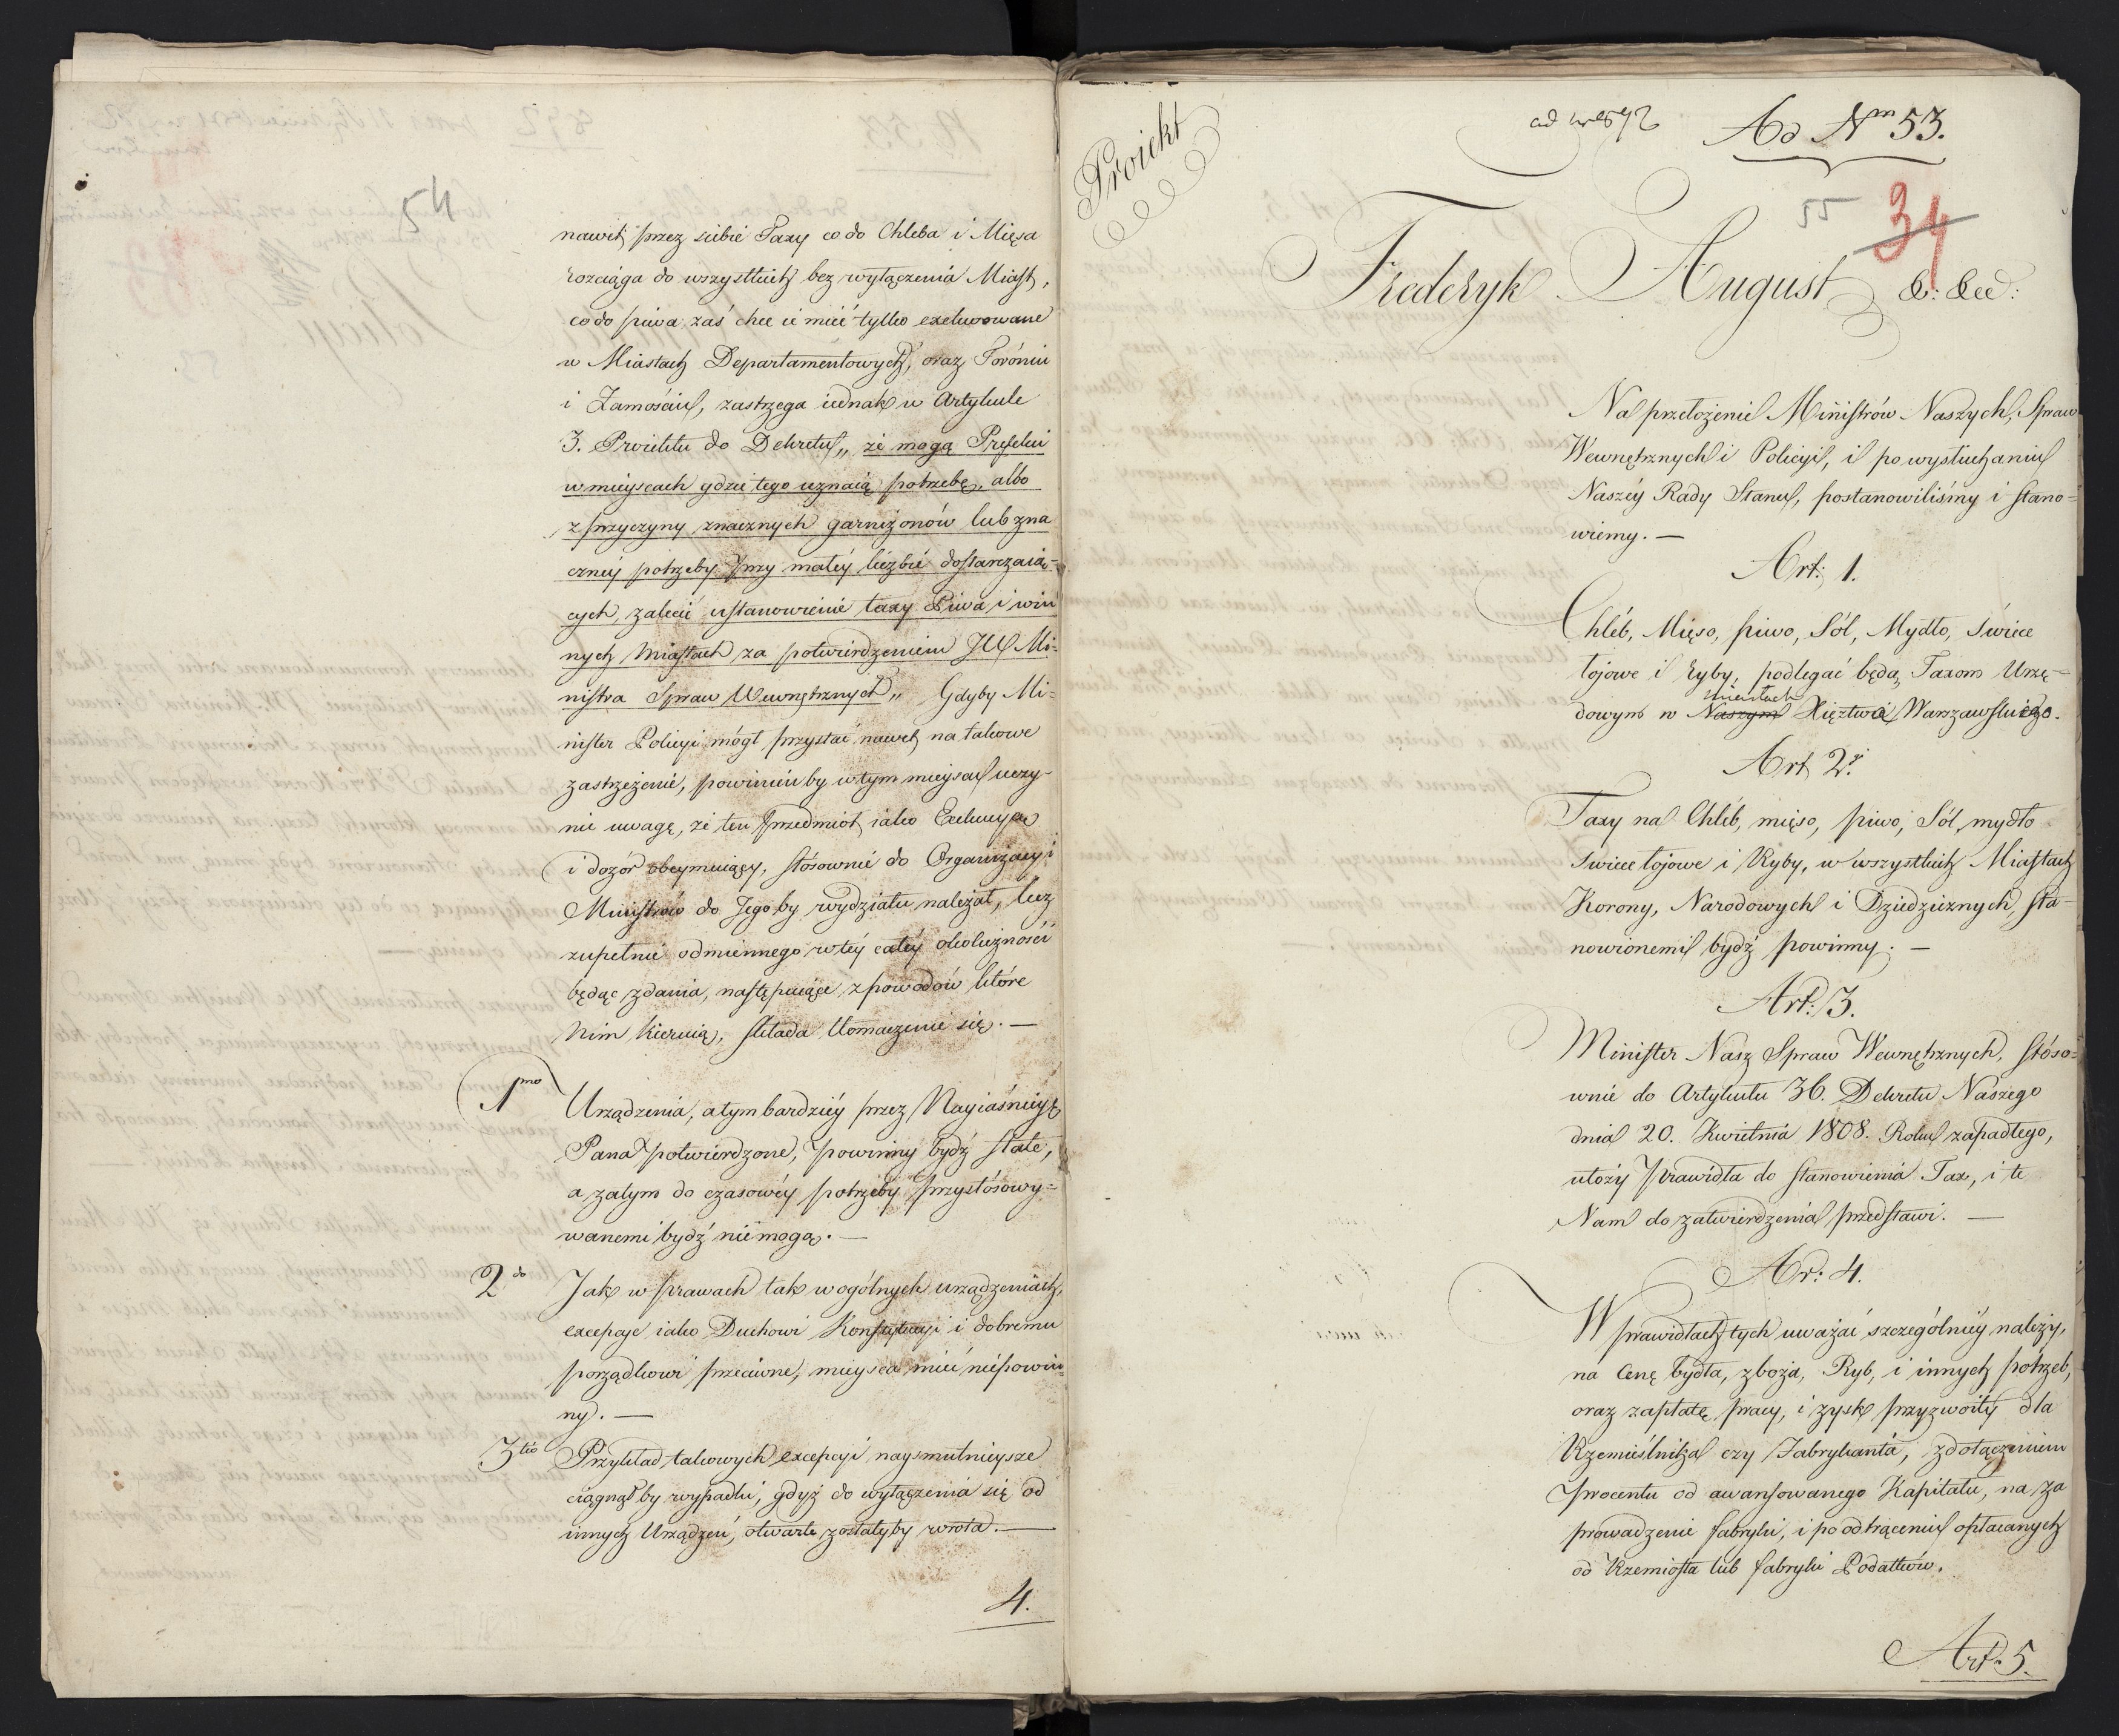 54
nawet przez siebie Taxy co do Chleba i Mięsa
rozciąga do wszystkich bez wyłączenia Miast,
co do piwa zaś chce ie mieć tylko exekwowane
w Miastach Departamentowych, oraz Toróniu
i Zamościu, zastrzega iednak w Artykule
3. Proiektu do Dekretu „ że mogą Prefekci
w mieyscach gdzie tego uznaią potrzebę, albo
z przyczyny znacznych garnizonów lub zna
czney potrzeby przy małéy liczbie dostarczaią-
cych, zalecić ustanowienie taxy Piwa i w in
nych Miastach za potwierdzeniem JW Mi-
nistra Spraw Wewnętrznych „ Gdyby Mi-
nister Policyi mógł przystać nawet na takowe
zastrzeżenie, powinien by w tym mieyscu uczy-
nić uwagę, że ten przedmiot iako Exekucyą
i dozór obeymuiący, stósownie do Organizacyi
Ministrów do Jego by wydziału należał, lecz
zupełnie odmiennego w téy całéy okoliczności
będąc zdania, następuiące z powodów które
Nim kieruią, składa tłomaczenie się. —
1mo Urządzenia, a tym bardziéy przez Nayiaśnieysz
Pana potwierdzone, powinny bydź stałe,
a zatym do czasowéy potrzeby przystósowy=
wanemi bydź nie mogą. —
2do Jak w prawach tak w ogólnych urządzeniach,
excepcye iako Duchowi Konstytucyi i dobremu
porządkowi przeciwne, mieysca mieć nie powin-
ny. —
3tio Przykład takowych excepcyi naysmutnieysze
ciągnął by wypadki, gdyż do wyłączenia się od
innych Urządzeń, otwarte zostałyby wrota. —
4.
Proiekt
ad nr 892
Ad Nm 53.
55
34
Frederyk August &: &cc:
Na przełożenie Ministrów Naszych, Spraw
Wewnętrznych i Policyi, i po wysłuchaniu
Naszéy Rady Stanu, postanowiliśmy i stano=
wiemy. —
Art: 1.
Chléb, Mięso, piwo, Sól, Mydło, Świece
łojowe i Ryby, podlegać będą Taxom Urzę-
miastach
dowym w Naszym Xięztwa Warszawskiego.
Art 2.
Taxy na Chléb, mięso, piwo, Sól, mydło
Świece łojowe i Ryby, w wszystkich Miastach
Korony, Narodowych i Dziedzicznych, sta-
nowionemi bydź powinny. —
Art: 3.
Minister Nasz Spraw Wewnętrznych, stóso=
wnie do Artykułu 36. Dekretu Naszego
dnia 20. Kwietnia 1808. Roku zapadłego,
ułoży prawidła do stanowienia Tax, i te
Nam do zatwierdzenia przedstawi. —
Ar: 4.
W prawidłach tych uważać szczególniéy należy,
na Cenę bydła, zboża, Ryb, i innych potrzeb,
oraz zapłatę pracy, i zysk przyzwoity dla
Rzemieślnika czy Fabrykanta, z dołączeniem
procentu od awansowanego Kapitału, na za
prowadzenie fabryki, i po odtrąceniu opłacanych
od Rzemiosła lub fabryki Podatków.
Art: 5.